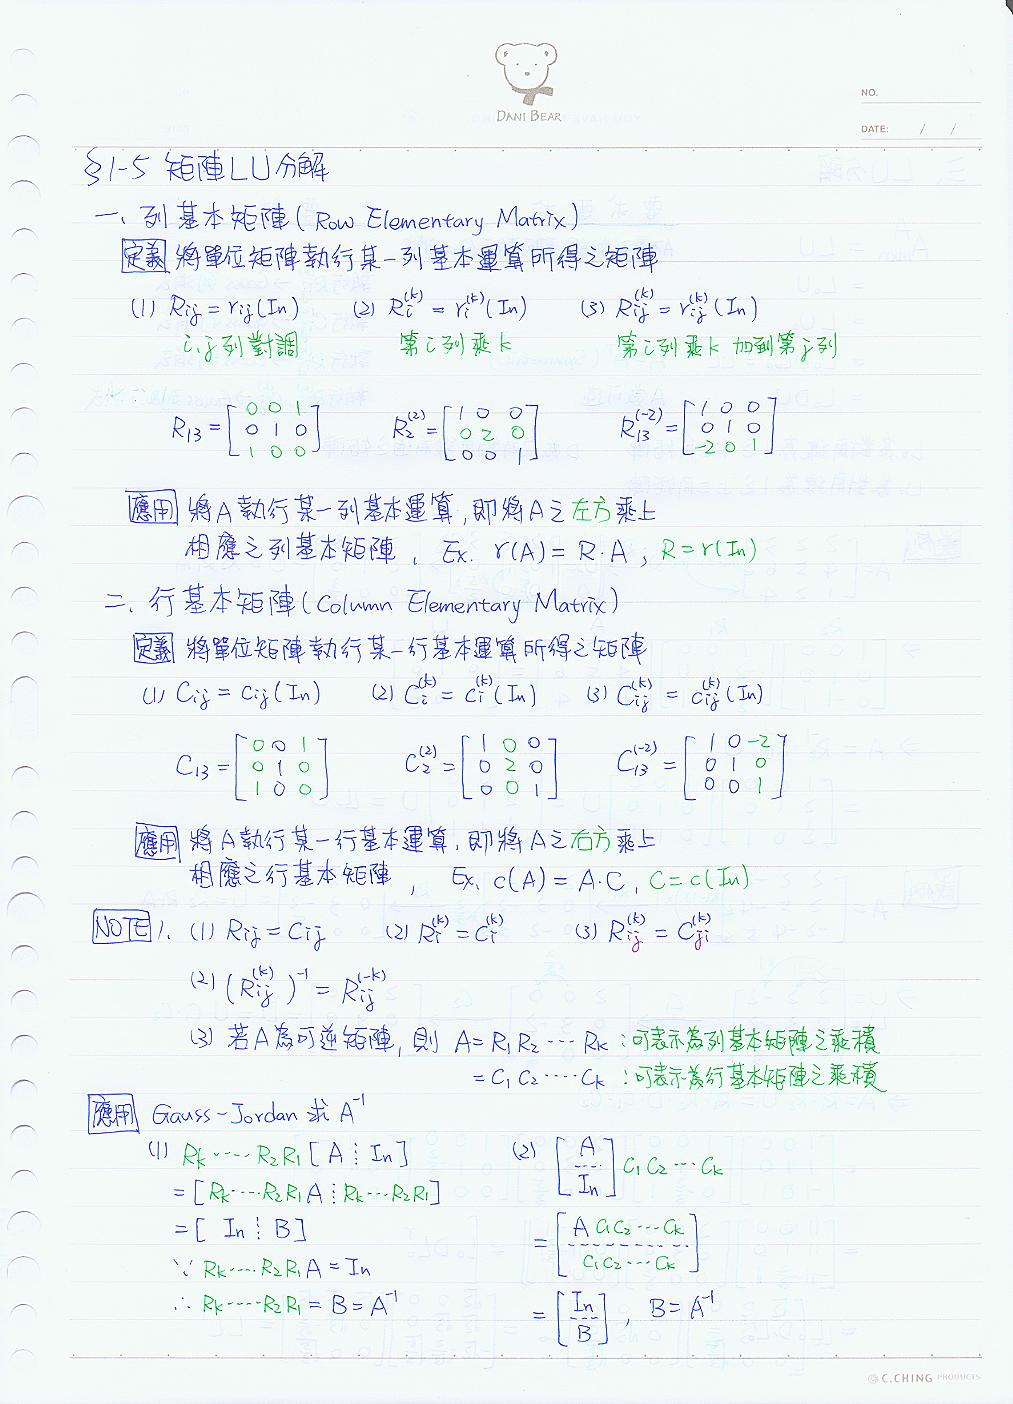 DANI BEAR
NO.
DATE: / /
§1-5 矩陣LU分解
一、列基本矩陣(Row Elementary Matrix)
定義 將單位矩陣執行某一列基本運算所得之矩陣
(1) Rij = rij(In) (2) Ri^(k) = ri^(k)(In) (3) Rij^(k) = rij^(k)(In)
i,j列對調 第i列乘k 第i列乘k 加到第j列
R13 = [0 0 1; 0 1 0; 1 0 0] R2^(2) = [1 0 0; 0 2 0; 0 0 1] R13^(-2) = [1 0 0; 0 1 0; -2 0 1]
應用 將A執行某一列基本運算,即將A之左方乘上
相應之列基本矩陣, Ex. r(A) = R·A, R = r(In)
二、行基本矩陣(Column Elementary Matrix)
定義 將單位矩陣執行某一行基本運算所得之矩陣
(1) Cij = cij(In) (2) Ci^(k) = ci^(k)(In) (3) Cij^(k) = cij^(k)(In)
C13 = [0 0 1; 0 1 0; 1 0 0] C2^(2) = [1 0 0; 0 2 0; 0 0 1] C13^(-2) = [1 0 -2; 0 1 0; 0 0 1]
應用 將A執行某一行基本運算,即將A之右方乘上
相應之行基本矩陣, Ex. c(A) = A·C, C = c(In)
NOTE 1. (1) Rij = Cij (2) Ri^(k) = Ci^(k) (3) Rij^(k) = Cji^(k)
(2) (Rij^(k))^-1 = Rij^(-k)
(3) 若A為可逆矩陣,則 A = R1R2 ⋯ Rk :可表示為列基本矩陣之乘積
= C1C2 ⋯⋯ Ck :可表示為行基本矩陣之乘積
應用 Gauss-Jordan 求 A^-1
(1) Rk⋯⋯R2R1[A ⋮ In] (2) [A / In] C1C2⋯Ck
= [Rk⋯R2R1A ⋮ Rk⋯R2R1]
= [In ⋮ B] = [A C1C2⋯Ck / C1C2⋯Ck]
∵ Rk⋯⋯R2R1A = In
∴ Rk⋯⋯R2R1 = B = A^-1 = [In / B], B = A^-1
C.CHING PRODUCTS